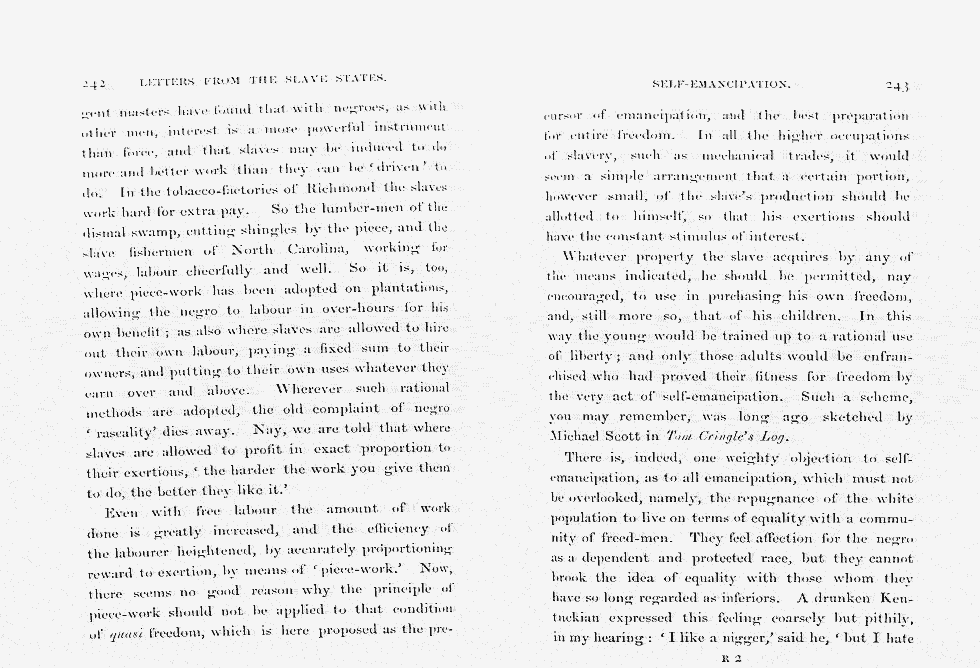 242 LETTERS FROM THE SLAVE STATES.
gent masters have found that with negroes, as with
other men, interest is a more powerful instrument
than force, and that slaves may be induced to do
more and better work than they can be ‘driven’ to
do. In the tobacco-factories of Richmond the slaves
work hard for extra pay. So the lumber-men of the
dismal swamp, cutting shingles by the piece, and the
slave fishermen of North Carolina, working for
wages, labour cheerfully and well. So it is, too,
where piece-work has been adopted on plantations,
allowing the negro to labour in over-hours for his
own benefit; as also where slaves are allowed to hire
out their own labour, paying a fixed sum to their
owners, and putting to their own uses whatever they
earn over and above. Wherever such rational
methods are adopted, the old complaint of negro
‘rascality’ dies away. Nay, we are told that where
slaves are allowed to profit in exact proportion to
their exertions, ‘the harder the work you give them
to do, the better they like it.’
Even with free labour the amount of work
done is greatly increased, and the efficiency of
the labourer heightened, by accurately proportioning
reward to exertion, by means of ‘piece-work.’ Now,
there seems no good reason why the principle of
piece-work should not be applied to that condition
of quasi freedom, which is here proposed as the pre-
SELF-EMANCIPATION. 243
cursor of emancipation, and the best preparation
for entire freedom. In all the higher occupations
of slavery, such as mechanical trades, it would
seem a simple arrangement that a certain portion,
however small, of the slave's production should be
allotted to himself, so that his exertions should
have the constant stimulus of interest.
Whatever property the slave acquires by any of
the means indicated, he should be permitted, nay
encouraged, to use in purchasing his own freedom,
and, still more so, that of his children. In this
way the young would be trained up to a rational use
of liberty; and only those adults would be enfran-
chised who had proved their fitness for freedom by
the very act of self-emancipation. Such a scheme,
you may remember, was long ago sketched by
Michael Scott in Tom Cringle's Log.
There is, indeed, one weighty objection to self-
emancipation, as to all emancipation, which must not
be overlooked, namely, the repugnance of the white
population to live on terms of equality with a commu-
nity of freed-men. They feel affection for the negro
as a dependent and protected race, but they cannot
brook the idea of equality with those whom they
have so long regarded as inferiors. A drunken Ken-
tuckian expressed this feeling coarsely but pithily,
in my hearing: ‘I like a nigger,’ said he, ‘but I hate
R 2